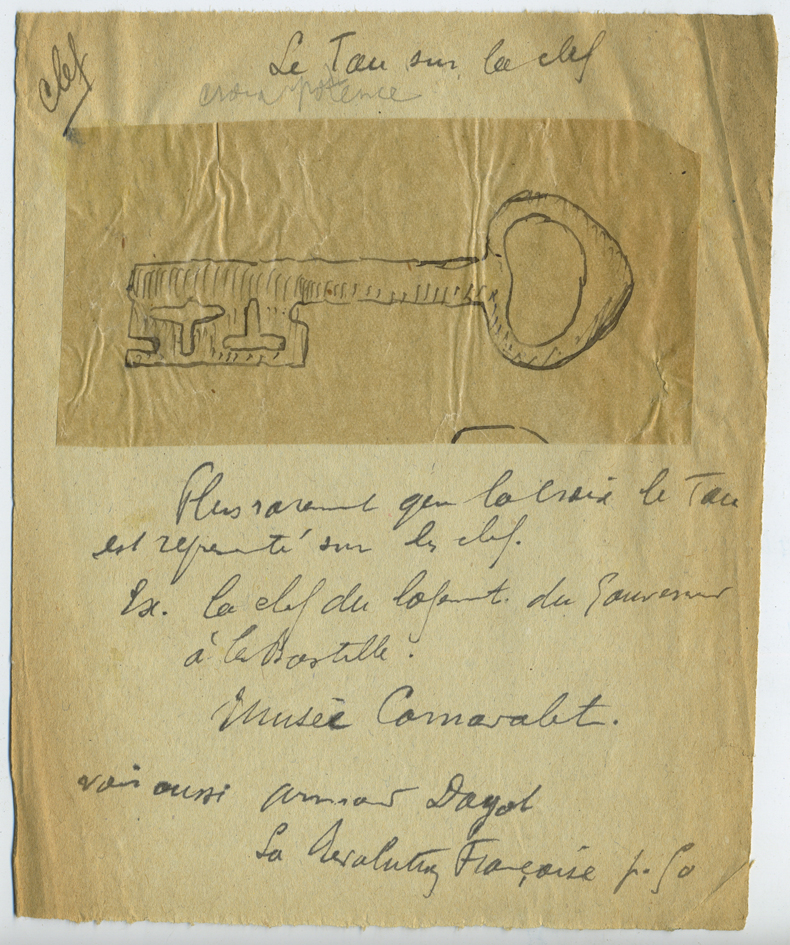 clef
Le Tau sur la clef
croix potence
Plus rarement que la croix le Tau
est représenté sur les clefs.
Ex. la clef du logement du Gouverneur
à la Bastille.
Musée Carnavalet.
voir aussi Armand Dayot
La Révolution Française p. 50